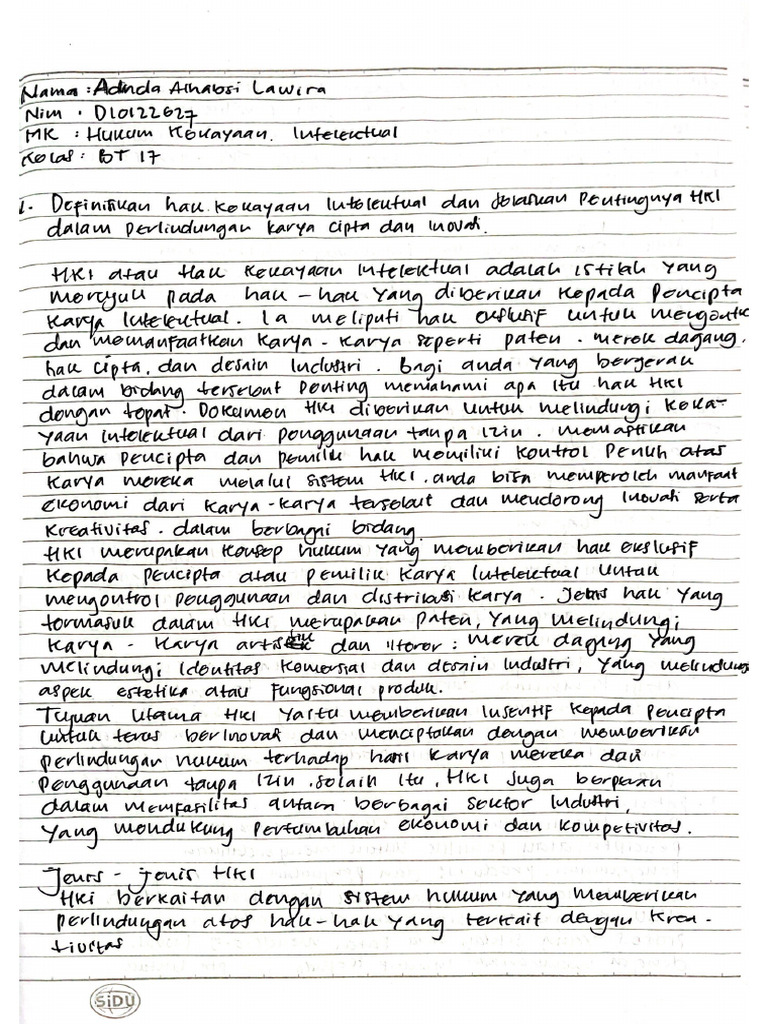 Nama : Adinda Alhabsi Lawira
Nim : D10122627
MK : Hukum Kekayaan Intelektual
Kelas : BT 17
1. Definisikan hak kekayaan Intelektual dan Jelaskan Pentingnya HKI
dalam perlindungan karya cipta dan Inovasi.
HKI atau Hak kekayaan Intelektual adalah istilah yang
merujuk pada hak-hak yang diberikan kepada Pencipta
karya Intelektual. Ia meliputi hak eksklusif untuk mengontrol
dan memanfaatkan karya-karya seperti paten, merek dagang,
hak cipta, dan desain Industri. Bagi anda yang bergerak
dalam bidang tersebut Penting memahami apa itu hak HKI
dengan tepat. Dokumen HKI diberikan untuk melindungi keka-
yaan intelektual dari penggunaan tanpa izin. Memastikan
bahwa pencipta dan pemilik hak memiliki kontrol Penuh atas
karya mereka melalui sistem HKI. anda bisa memperoleh manfaat
ekonomi dari karya-karya tersebut dan mendorong Inovasi serta
kreativitas. dalam berbagai bidang.
HKI merupakan konsep hukum yang memberikan hak eksklusif
kepada pencipta atau pemilik karya Intelektual Untuk
mengontrol penggunaan dan distribusi karya. Jenis hak yang
termasuk dalam HKI merupakan paten, yang melindungi
karya - karya artistik dan literer : merek dagang yang
melindungi Identitas komersial dan desain Industri, yang melindungi
aspek estetika atau Fungsional produk.
Tujuan Utama HKI Yaitu memberikan Insentif kepada Pencipta
untuk terus berinovasi dan menciptakan dengan memberikan
perlindungan hukum terhadap hasil karya mereka dari
penggunaan tanpa izin. selain itu, HKI Juga berperan
dalam memfasilitas antara berbagai sektor Industri,
Yang mendukung pertumbuhan ekonomi dan kompetivitas.
Jenis - jenis HKI
HKI berkaitan dengan sistem hukum yang memberikan
perlindungan atas hak-hak yang terkait dengan krea-
tivitas
SiDU